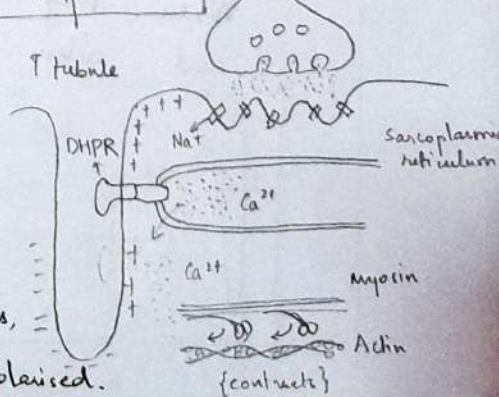 T tubule
DHPR
Na+
Sarcoplasmic
reticulum
Ca²⁺
Ca²⁺
Myosin
Actin
{contracts}